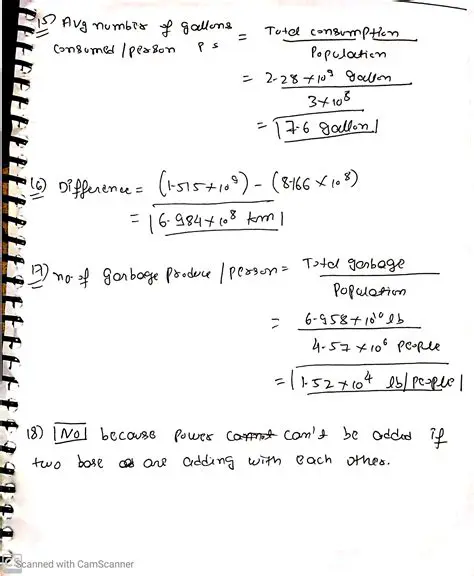 15) Avg number of gallons = Total consumption
consumed / person Ps Population
= 2.28 × 10⁹ gallon
3 × 10⁸
= 7.6 gallon
16) Difference = (1.515 × 10⁹) - (8.166 × 10⁸)
= 6.984 × 10⁸ km
17) no. of garbage produce / person = Total garbage
Population
= 6.958 × 10¹⁰ lb
4.57 × 10⁶ people
= 1.52 × 10⁴ lb/people
18) No because power can't be added if
two base are adding with each other.
Scanned with CamScanner